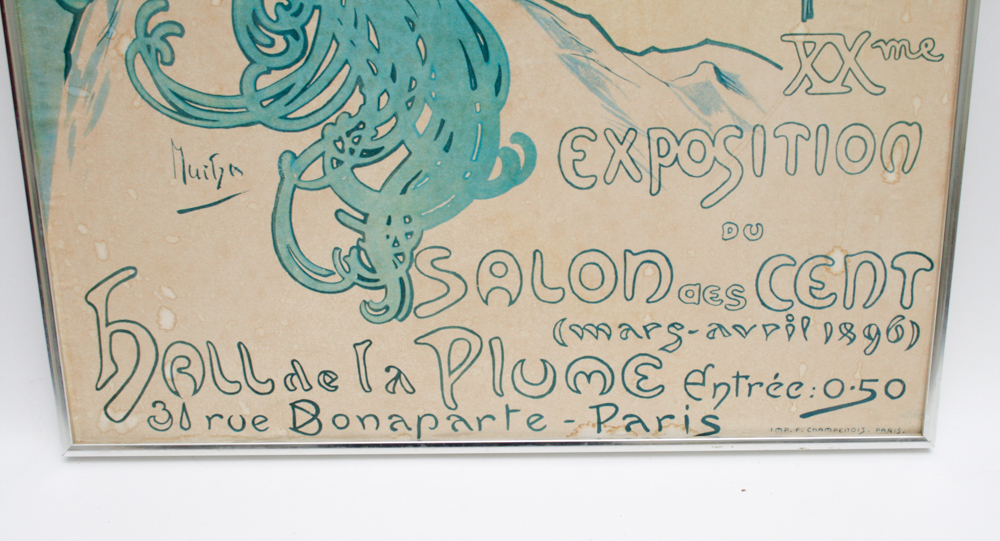 XXme
EXPOSITION
Mucha
DU
SALON des CENT
(mars-avril 1896)
HALL de la PLUME Entrée: 0.50
31 rue Bonaparte - Paris
IMP. F. CHAMPENOIS. PARIS.